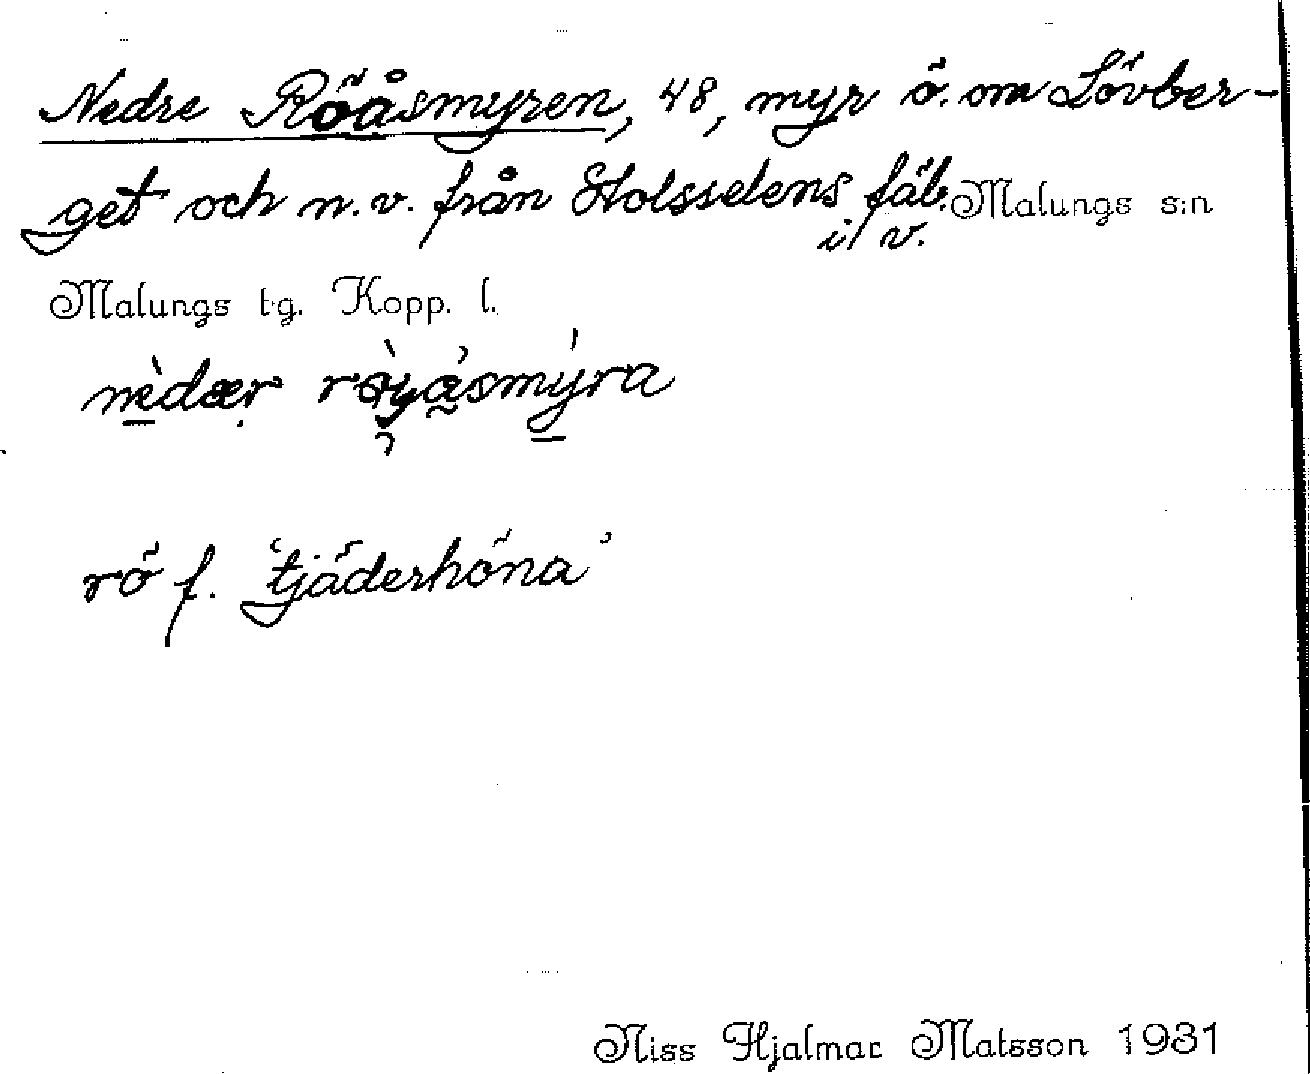 Nedre Röåsmyren, 48, myr ö. om Lövber-
get och n.v. från Stolsselens fäb. Malungs s:n
i v.
Malungs tg. Kopp. l.
nèdær røyåsmýra
rö f. 'tjäderhöna'
Niss Hjalmar Matsson 1931